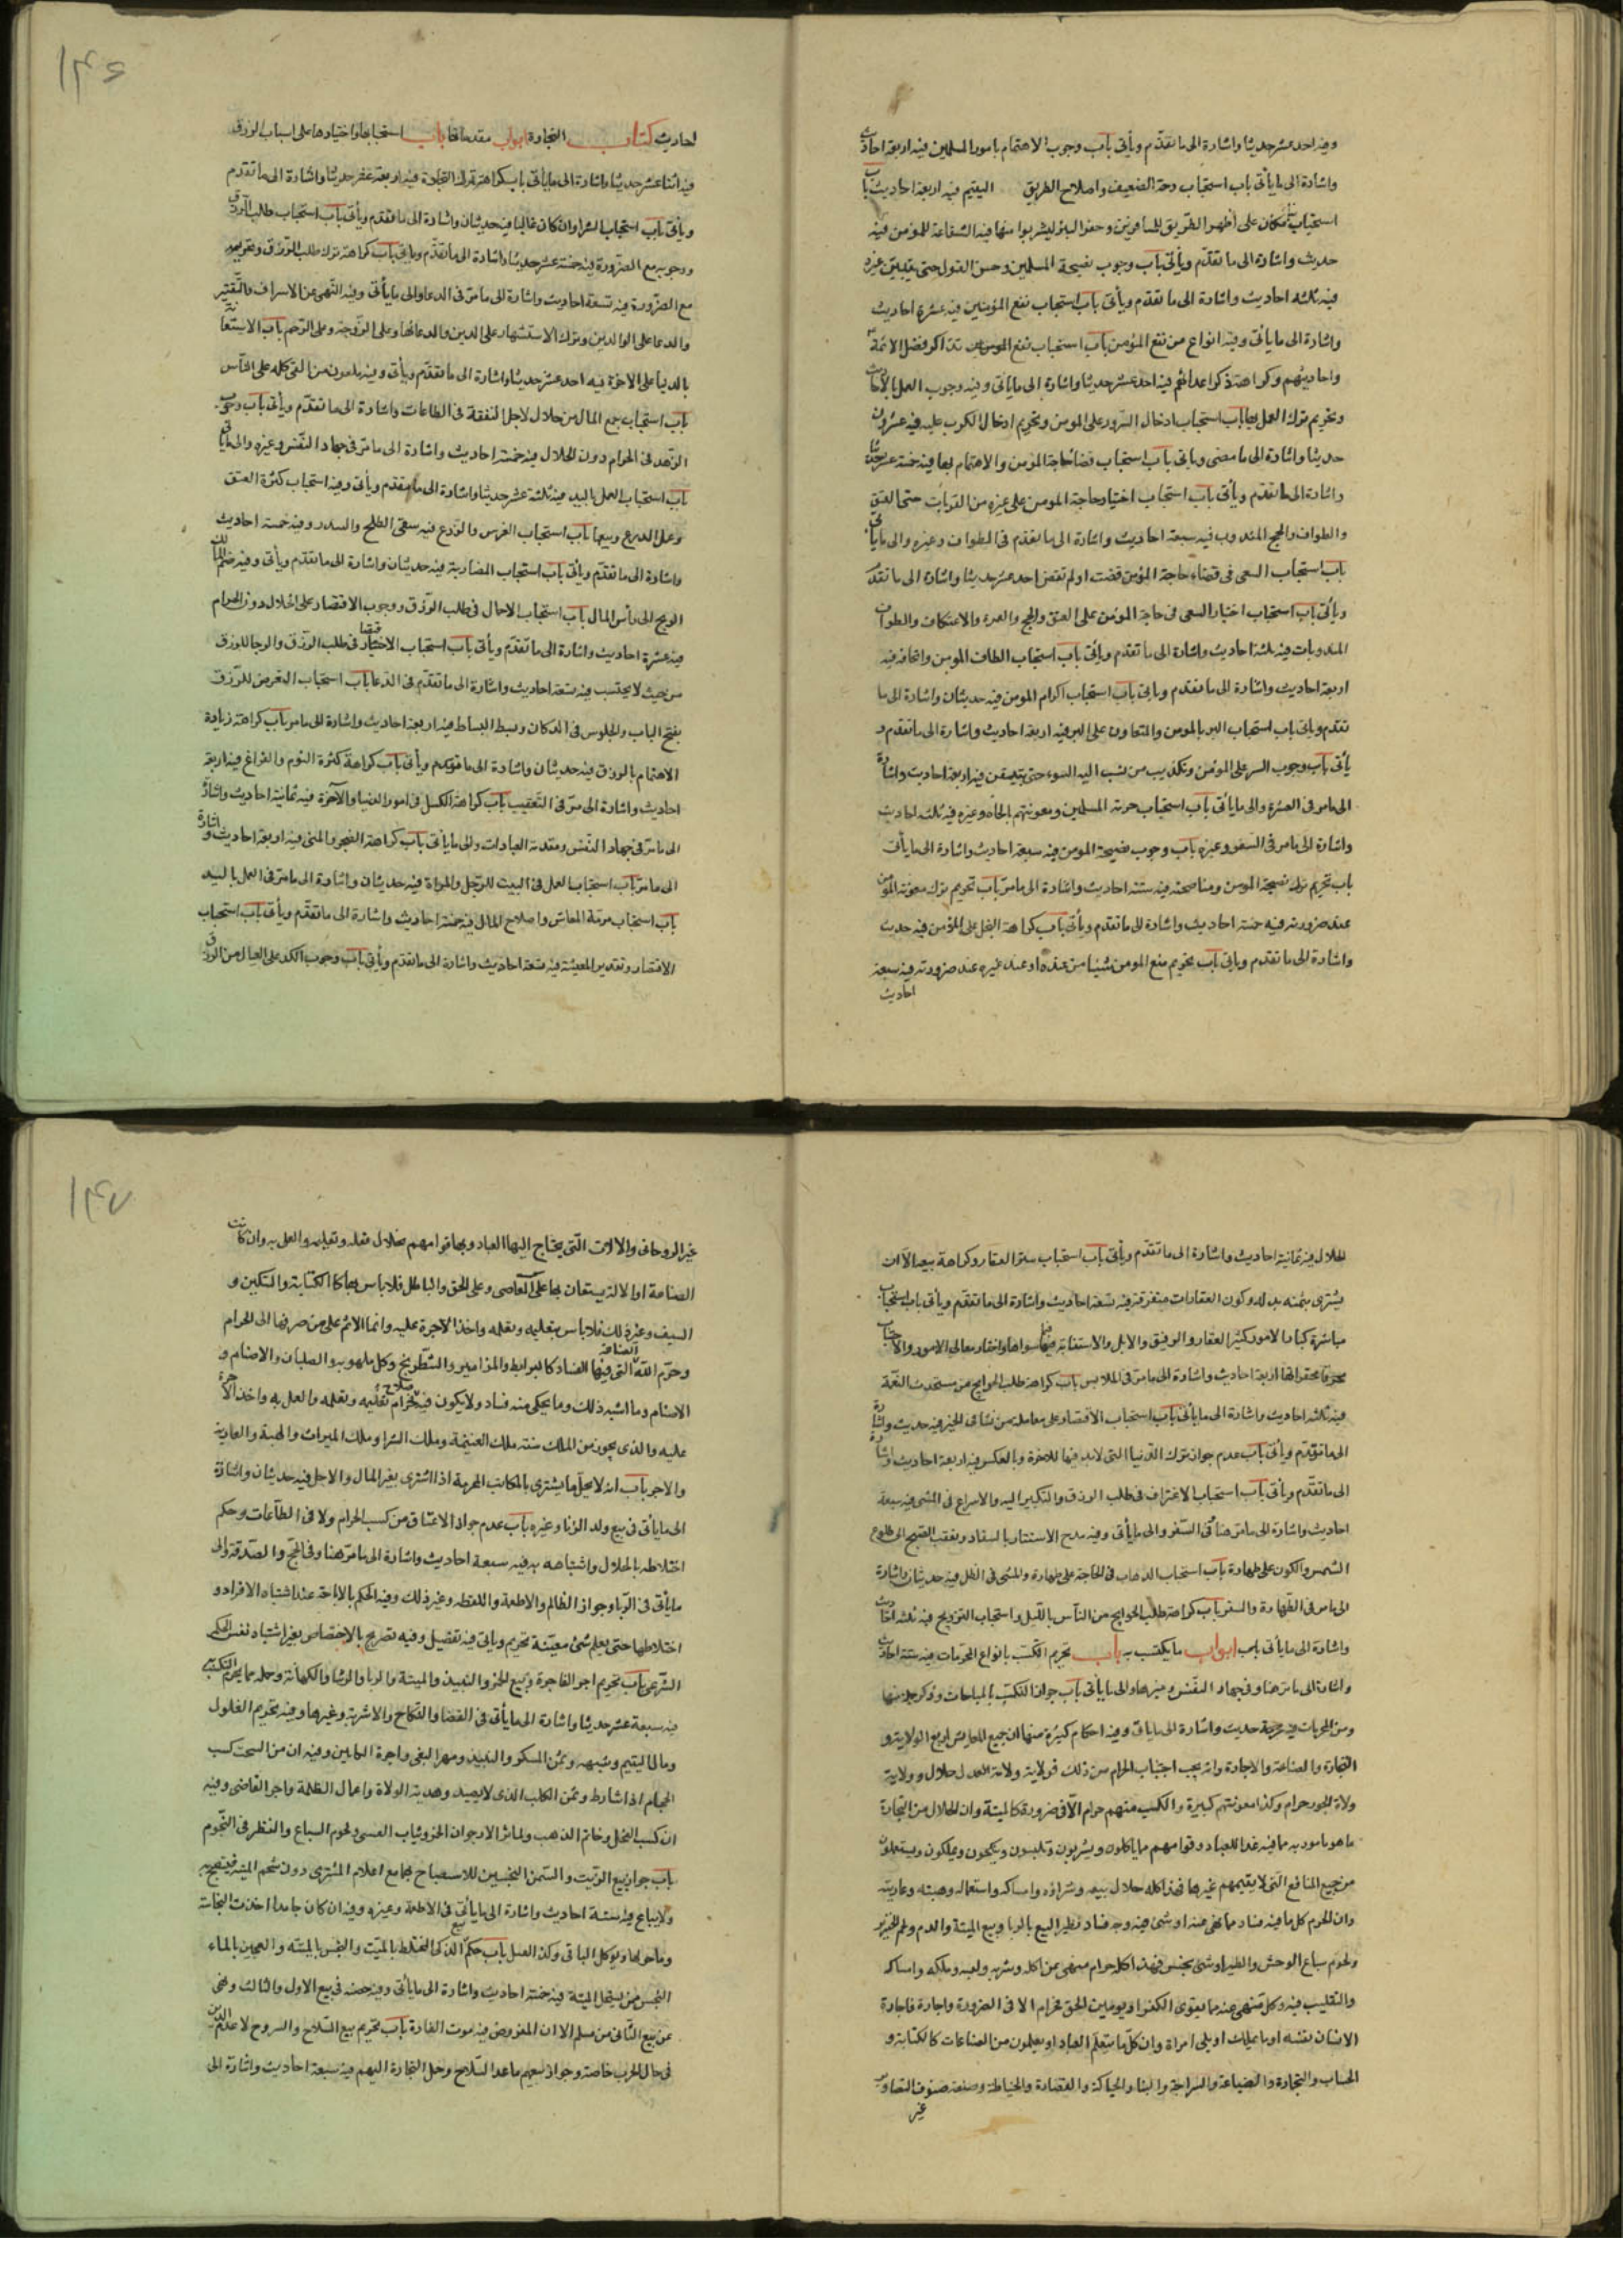 وفيه احد عشر حديثا واشارة الى ما تقدّم ويأتى باب وجوب الاهتمام بامور المسلمين فيه اربعة احاديث
واشارة الى ما يأتى باب استحباب رحمة الضعيف واصلاح الطريق اليتيم فيه اربعة احاديث باب
استحباب على ظهر الطريق للمسافرين وحفر البئر ليشربوا منها فيه الشفاعة للمؤمن فيه
حديث واشارة الى ما تقدّم ويأتى باب وجوب نصيحة المسلمين وحسن القول حتى يتبيّن غيره
فيه ثلثه احاديث واشارة الى ما تقدم ويأتى باب استحباب نفع المؤمنين فيه عشرة احاديث
واشارة الى ما يأتى وفيه انواع من نفع المؤمن باب استحباب تذاكر فضل الائمّة
واحاديثهم وكراهة ذكر اعدائهم فيه احد عشر حديثا واشارة الى ما يأتى وفيه وجوب العمل بالاحاديث
وتحريم ترك العمل بها باب استحباب ادخال السّرور على المومن وتحريم ادخال الكرب عليه فيه عشرون
حديثا واشارة الى ما مضى وياتى باب استحباب قضا حاجة المؤمن والاهتمام بها فيه خمسة عشر حديثا
واشارة الى ما تقدّم ويأتى باب استحباب اختيار حاجة المومن على غيره من القربات حتى العتق
والطواف والحج المندوب فيه سبعة احاديث واشارة الى ما تقدّم فى الطواف وغيره والى ما يأتى
باب استحباب السعى فى قضاء حاجة المؤمن قضت او لم تقض احد عشر حديثا واشارة الى ما تقدم
ويأتى باب استحباب اختيار السعى فى حاجة المؤمن على العتق والحج والعمرة والاعتكاف والطواف
المندوبات فيه ثلثه احاديث واشارة الى ما تقدّم ويأتى باب استحباب الطاف المومن واتحافه فيه
اربعة احاديث واشارة الى ما تقدّم وياتى باب استحباب اكرام المومن فيه حديثان واشارة الى ما
تقدم وياتى باب استحباب البر بالمومن والتعاون على البر فيه اربعة احاديث واشارة الى ما تقدم و
يأتى باب وجوب الستر على المؤمن وتكذيب من نسب اليه السوء حتى يتيقن فيه اربعة احاديث واشارة
الى ما مر فى العشرة والى ما يأتى باب استحباب خدمة المسلمين ومعونتهم بالجاه وغيره فيه ثلثه احاديث
واشارة الى ما مر فى السفر وغيره باب وجوب نصيحة المومن فيه سبعة احاديث واشارة الى ما يأتى
باب تحريم ترك نصيحة المومن ومناصحته فيه ستة احاديث واشارة الى ما مرّ باب تحريم ترك معونة المؤمن
عند ضرورته فيه خمسة احاديث واشارة الى ما تقدم ويأتى باب كراهة البخل على المؤمن فيه حديث
واشارة الى ما تقدم وياتى باب تحريم منع المومن شيئا من عنده او عند غيره عند ضرورته فيه سبعة
احاديث
١٤٦
احاديث كتاب التجارة ابواب مقدماتها باب استحبابها واختيارها على اسباب الرزق
فيه اثنا عشر حديثا واشارة الى ما يأتى باب كراهة ترك التجارة فيه اربعة عشر حديثا واشارة الى ما تقدّم
ويأتى باب استحباب الشرا وان كان غاليا فيه حديثان واشارة الى ما تقدم ويأتى باب استحباب طلب الرزق
ووجوبه مع الضرورة فيه خمسة عشر حديثا واشارة الى ما تقدّم وياتى باب كراهة ترك طلب الرّزق وتحريمه
مع الضرورة فيه تسعة احاديث واشارة الى ما مرّ فى الدعا والى ما يأتى وفيه النّهى عن الاسراف والتّقتير
والدعا على الوالدين وترك الاستشهاد على الدين والدعا على الزّوجة وعلى الرّحم باب الاستعانة
بالدنيا على الاخرة فيه احد عشر حديثا واشارة الى ما تقدّم ويأتى وفيه ملعون من القى كله على النّاس
باب استحباب جمع المال من حلال لاجل النفقة فى الطاعات واشارة الى ما تقدّم ويأتى باب وجوب
الزّهد فى الحرام دون الحلال فيه خمسة احاديث واشارة الى ما مرّ فى جهاد النّفس وغيره والى ما يأتى
باب استحباب العمل باليد فيه ثلثة عشر حديثا واشارة الى ما تقدّم ويأتى وفيه استحباب كثرة العتق
وعمل الدرع وبيعها باب استحباب الغرس والزرع فيه سقى الطلح والسدر وفيه خمسة احاديث
واشارة الى ما تقدّم ويأتى باب استحباب المضاربة فيه حديثان واشارة الى ما تقدم ويأتى وفيه ضم
الربح الى رأس المال باب استحباب الاجمال فى طلب الرّزق ووجوب الاقتصار على الحلال دون الحرام
فيه عشرة احاديث واشارة الى ما تقدّم ويأتى باب استحباب الاقتصاد فى طلب الرّزق والرجا للرزق
من حيث لا يحتسب فيه تسعة احاديث واشارة الى ما تقدّم فى الدعا باب استحباب التعرض للرّزق
بفتح الباب والجلوس فى الدكان وبسط البساط فيه اربعة احاديث واشارة الى ما مر باب كراهة زيادة
الاهتمام بالرزق فيه حديثان واشارة الى ما تقدم ويأتى باب كراهة كثرة النوم والفراغ فيه اربعة
احاديث واشارة الى مرّ فى التّعقيب باب كراهة الكسل فى امور الدنيا والآخرة فيه ثمانية احاديث واشارة
الى ما مرّ فى جهاد النّفس ومقدمة العبادات والى ما يأتى باب كراهة الضجر والمنى فيه اربعة احاديث واشارة
الى ما مرّ باب استحباب العمل فى البيت للرّجل والمراة فيه حديثان واشارة الى ما مرّ فى العمل باليد
باب استحباب مرمّة المعاش واصلاح المال فيه خمسة احاديث واشارة الى ما تقدّم ويأتى باب استحباب
الاقتصاد وتقدير المعيشة فيه تسعة احاديث واشارة الى ما تقدم ويأتى باب وجوب الكد على العيال من الرزق
الحلال فيه ثمانية احاديث واشارة الى ما تقدّم ويأتى باب استحباب شرا العقار وكراهة بيعه الا ان
يشترى بثمنه بدله وكون العقارات متفرقة فيه تسعة احاديث واشارة الى ما تقدّم ويأتى باب استحباب
مباشرة كبار الامور كشر العقار والرقيق والابل والاستنابة فيما سواها واختيار معالى الامور واجتناب
محقراتها فيه اربعة احاديث واشارة الى ما مرّ فى الملابس باب كراهة طلب الحوايج من مستحدث النّعمة
فيه ثلثه احاديث واشارة الى ما يأتى باب استحباب الاقتصار على معاملة من نشا فى الخير فيه حديث واشارة
الى ما تقدّم ويأتى باب عدم جواز ترك الدّنيا التى لا بد منها للاخرة وبالعكس فيه اربعة احاديث واشارة
الى ما تقدّم ويأتى باب استحباب الاغتراب فى طلب الرزق والتبكير اليه والاسراع فى المشى فيه سبعة
احاديث واشارة الى ما مرّ هنا وفى السّفر والى ما يأتى وفيه مدح الاستتار بالسفاد وتعقيب الصّبح الى طلوع
الشمس والكون على طهارة باب استحباب الذهاب فى الحاجة على طهارة والمشى فى الظل فيه حديثان واشارة
الى ما مر فى الطّهارة والسفر باب كراهة طلب الحوايج من النّاس بالليل واستحباب التزويج فيه ثلثه احاديث
واشارة الى ما يأتى ابواب ما يكتسب به باب تحريم التكسّب بانواع المحرّمات فيه ستة احاديث
واشارة الى ما مرّ هنا وفى جهاد النّفس وغيرهما والى ما يأتى باب جواز التكسّب بالمباحات وذكر جملة منها
ومن المحرمات فيه حديث واشارة الى ما يأتى وفيه احكام كثيرة منها ان جميع المعايش اربع الولاية و
التجارة والصناعة والاجارة وانه يجب اجتناب الحرام من ذلك فولاية ولاة العدل حلال وولاية
ولاة الجور حرام وكذا معونتهم كبيرة والكسب معهم حرام الّا فى ضرورة كالميتة وان الحلال من التجارة
ما هو مامور به مما فيه غذا للعباد وقوامهم مما ياكلون ويشربون ويلبسون وينكحون ويملكون ويستعملون
من جميع المنافع التى لا يقيمهم غيرها فهذا كله حلال بيعه وشراؤه وامساكه واستعماله وهبته وعاريته
وان الحرام كل ما فيه فساد مما نهى عنه او شىء فيه وجه فساد نظير البيع بالربا وبيع الميتة والدم ولحم الخنزير
ولحوم سباع الوحش والطير او شىء نجس فهذا كله حرام منهى عن اكله وشربه ولبسه وملكه وامساكه
والتقليب فيه وكل منهى عنه مما يقوى الكفر او يوهن الحق فحرام الا فى الضرورة واجارة فاجارة
الانسان نفسه او ما يملك او يلى امراة وان كلّ ما يتعلّم العباد او يعلمون من الصناعات كالكتابة و
الحساب والتجارة والصياغة والسراجة والبنا والحياكة والقصارة والخياطة وصنعة صنوف التصاوير
غير
١٤٧
غير الروحانى والالات التّى يحتاج اليها العباد وبها قوامهم فحلال فعله وتعليمه والعمل به وان كانت
الصناعة او الالة يستعان بها على المعاصى وعلى الحق والباطل فلا باس بها كالكتابة والسكين و
السيف وغير ذلك فلا باس بتعليمه وتعلمه واخذ الاجرة عليه وانما الاثم على من صرفها الى الحرام
وحرّم اللّه الصناعة التى فيها الفساد كالبرابط والمزامير والشّطرنج وكل ملهو به والصلبان والاصنام و
الاصنام وما اشبه ذلك وما يحكى منه فساد ولا يكون فيه صلاح فحرام تعليمه وتعلمه والعمل به واخذ الاجرة
عليه والذى يجوز من الملك ستة ملك الغنيمة وملك الشرا وملك الميراث والهبة والعارية
والاجر باب انه لا يحلّ ما يشترى بالمكاسب المحرمة اذا اشترى بغير المال والاجل فيه حديثان واشارة
الى ما يأتى فى بيع ولد الزنا وغيره باب عدم جواز الانفاق من كسب الحرام ولا فى الطّاعات وحكم
اختلاطه بالحلال واشتباهه به فيه سبعة احاديث واشارة الى ما مرّ هنا وفى الحجّ والصّدقة والى
ما يأتى فى الرّبا وجوائز الظالم والاطعمة واللقطه وغير ذلك وفيه الحكم بالاباحة عند اشتباه الافراد و
اختلاطها حتى يعلم شىء معيّنة تحريم وياتى فيه تفصيل وفيه تصريح بالاختصاص بغير اشتباه نفس الحكم
الشّرعى باب تحريم اجر الفاجرة وبيع الخمر والنبيذ والميتة والربا والرشا والكهانة وجملة مما يحرم التكسّب به
فيه سبعة عشر حديثا واشارة الى ما يأتى فى القضا والنكاح والاشربة وغيرها وفيه تحريم الغلول
ومال اليتيم وشبهه وثمن المسكر والنبيذ ومهر البغى واجرة الكاهن وفيه ان من السحت كسب
الحجام اذا شارط وثمن الكلب الذى لا يصيد وهدية الولاة واعمال الظلمة واجر القاضى وفيه
ان كسب الفحل وخاتم الذهب ولحوم السباع والنظر فى النّجوم
باب جواز بيع الزّيت والسّمن النجسين للاستصباح بهما مع اعلام المشترى دون شحم الميتة
ولا يباع فيه ستة احاديث واشارة الى ما يأتى فى الاطعمة وغيره وفيه ان كان جامدا اخذت النجاسة
وما حولها ويوكل الباقى وكذا العسل باب حكم بيع الذكى المختلط بالميّت والنجس بالميتة والعجين بالماء
النجس من يستحل الميتة فيه خمسة احاديث واشارة الى ما يأتى وفيه رخصة فى بيع الاول والثالث ونهى
عن بيع الثّانى من مسلم الا ان المفروض فيه موت الفارة باب تحريم بيع السّلاح والسروج لاعداء الدّين
فى حال الحرب خاصة وجواز بيعهم ما عدا السّلاح وحمل التجارة اليهم فيه سبعة احاديث واشارة الى